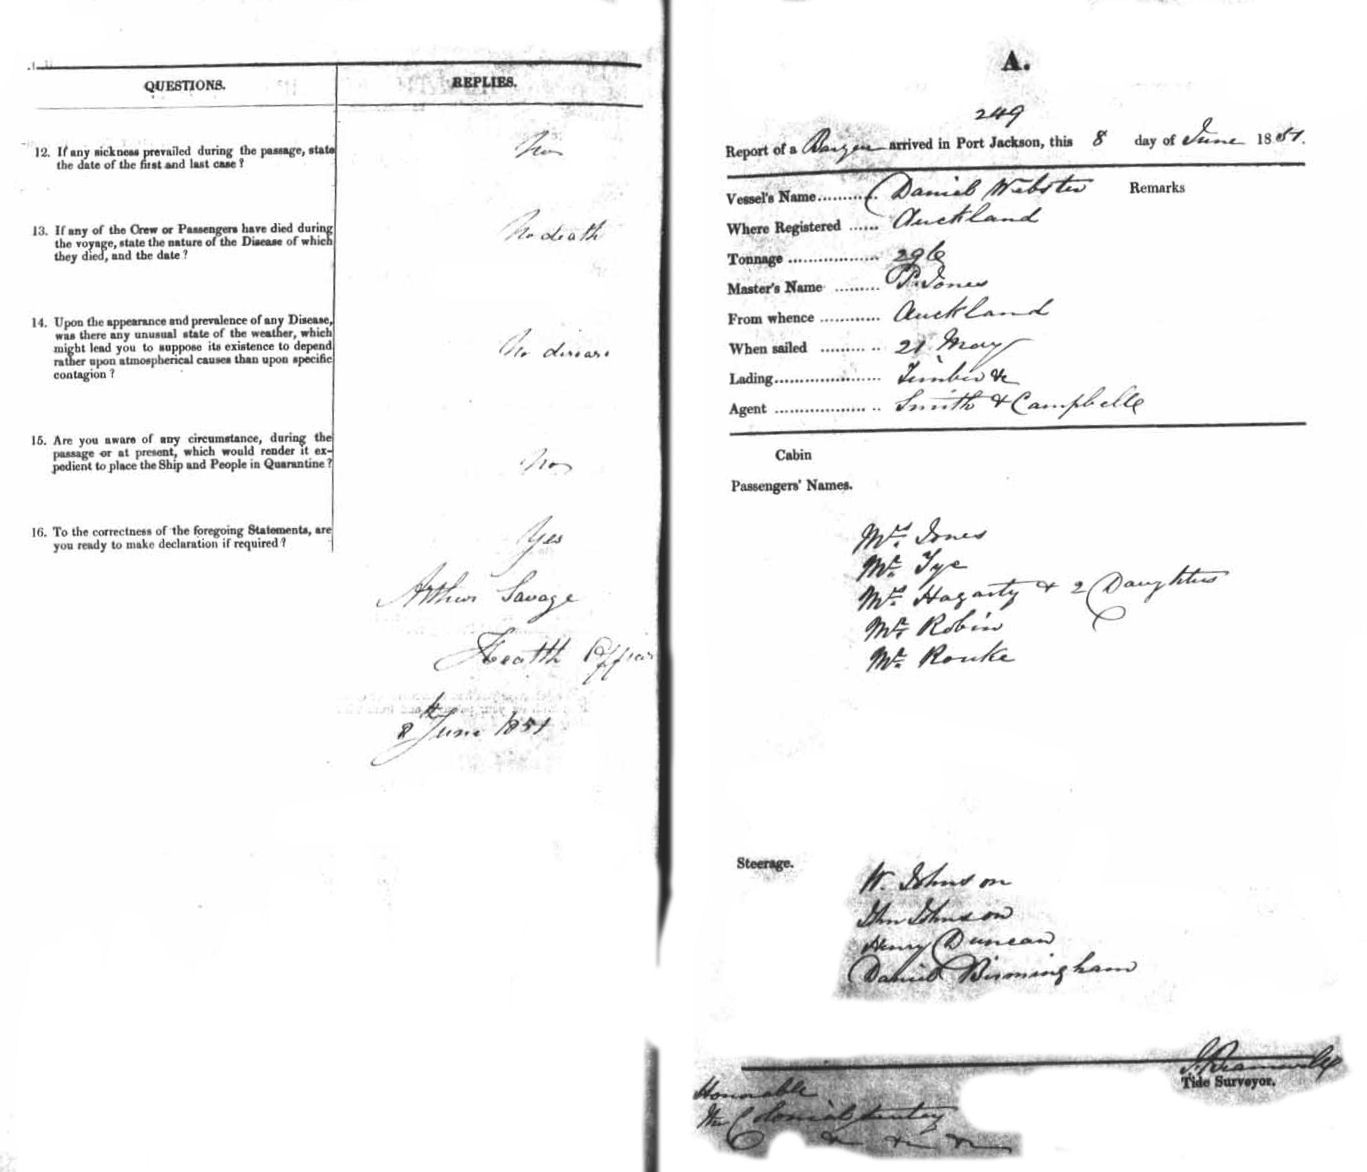 QUESTIONS. REPLIES.
12. If any sickness prevailed during the passage, state
the date of the first and last case? No
13. If any of the Crew or Passengers have died during
the voyage, state the nature of the Disease of which
they died, and the date? No death
14. Upon the appearance and prevalence of any Disease,
was there any unusual state of the weather, which
might lead you to suppose its existence to depend
rather upon atmospherical causes than upon specific
contagion? No disease
15. Are you aware of any circumstance, during the
passage or at present, which would render it ex-
pedient to place the Ship and People in Quarantine? No
16. To the correctness of the foregoing Statements, are
you ready to make declaration if required? Yes
Arthur Savage
Health Officer
8th June 1851
A.
249
Report of a arrived in Port Jackson, this 8 day of June 1851.
Vessel's Name.......... Daniel Webster Remarks
Where Registered ...... Auckland
Tonnage .................. 296
Master's Name ......... P. Jones
From whence ............ Auckland
When sailed ......... .. 21 May
Lading..................... Timber &c
Agent .................. .. Smith & Campbell
Cabin
Passengers' Names.
Mrs. Jones
Mr. Tye
Mrs. Hagarty & 2 Daughters
Mr. Robin
Mr. Rouke
Steerage.
W. Johnson
Jhn Johnson
Henry Duncan
Daniel Birmingham
Tide Surveyor.
Honorable
The Colonial
&c &c &c